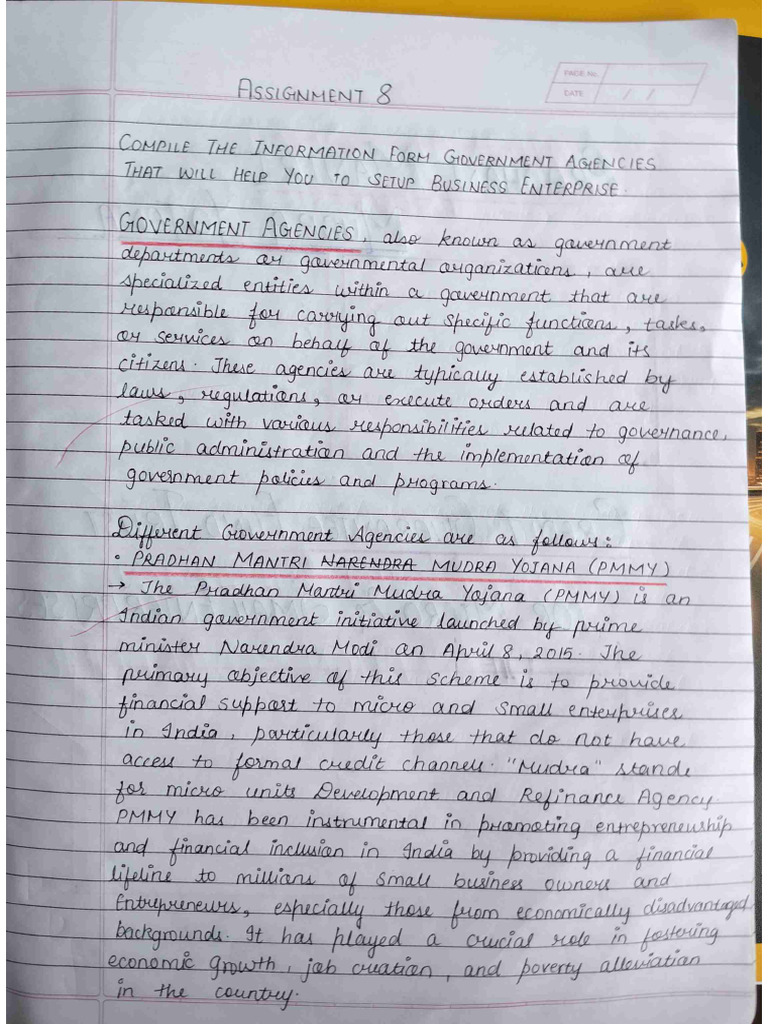 PAGE No.
DATE / /
ASSIGNMENT 8
COMPILE THE INFORMATION FORM GOVERNMENT AGENCIES
THAT WILL HELP YOU TO SETUP BUSINESS ENTERPRISE.
GOVERNMENT AGENCIES, also known as government
departments or governmental organizations, are
specialized entities within a government that are
responsible for carrying out specific functions, tasks,
or services on behalf of the government and its
citizens. These agencies are typically established by
laws, regulations, or execute orders and are
tasked with various responsibilities related to governance,
public administration and the implementation of
government policies and programs.
Different Government Agencies are as follows:
• PRADHAN MANTRI NARENDRA MUDRA YOJANA (PMMY)
→ The Pradhan Mantri Mudra Yojana (PMMY) is an
Indian government initiative launched by prime
minister Narendra Modi on April 8, 2015. The
primary objective of this scheme is to provide
financial support to micro and small enterprises
in India, particularly those that do not have
access to formal credit channels. "Mudra" stands
for micro units Development and Refinance Agency.
PMMY has been instrumental in promoting entrepreneurship
and financial inclusion in India by providing a financial
lifeline to millions of small business owners and
Entrepreneurs, especially those from economically disadvantaged
backgrounds. It has played a crucial role in fostering
economic growth, job creation, and poverty alleviation
in the country.